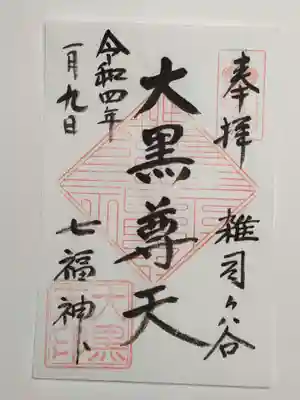 奉拝
雑司ヶ谷
大黒尊天
令和四年
一月九日
七福神